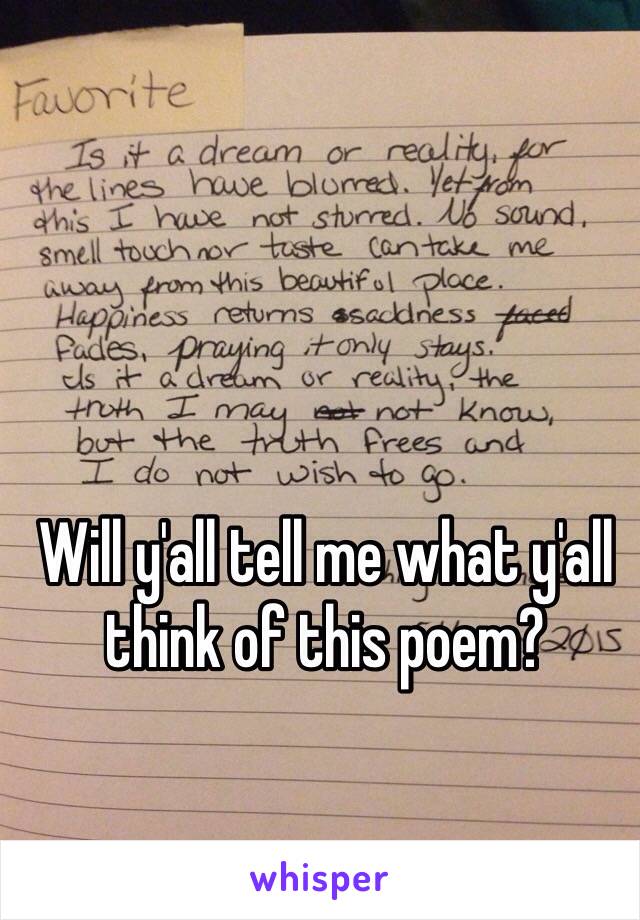 Favorite
Is it a dream or reality, for
the lines have blurred. Yet from
this I have not sturred. No sound,
smell touch nor taste can take me
away from this beautiful place.
Happiness returns saddness faced
fades, praying it only stays.
Is it a dream or reality, the
truth I may not not know,
but the truth frees and
I do not wish to go.
Will y'all tell me what y'all
think of this poem?
2015
whisper